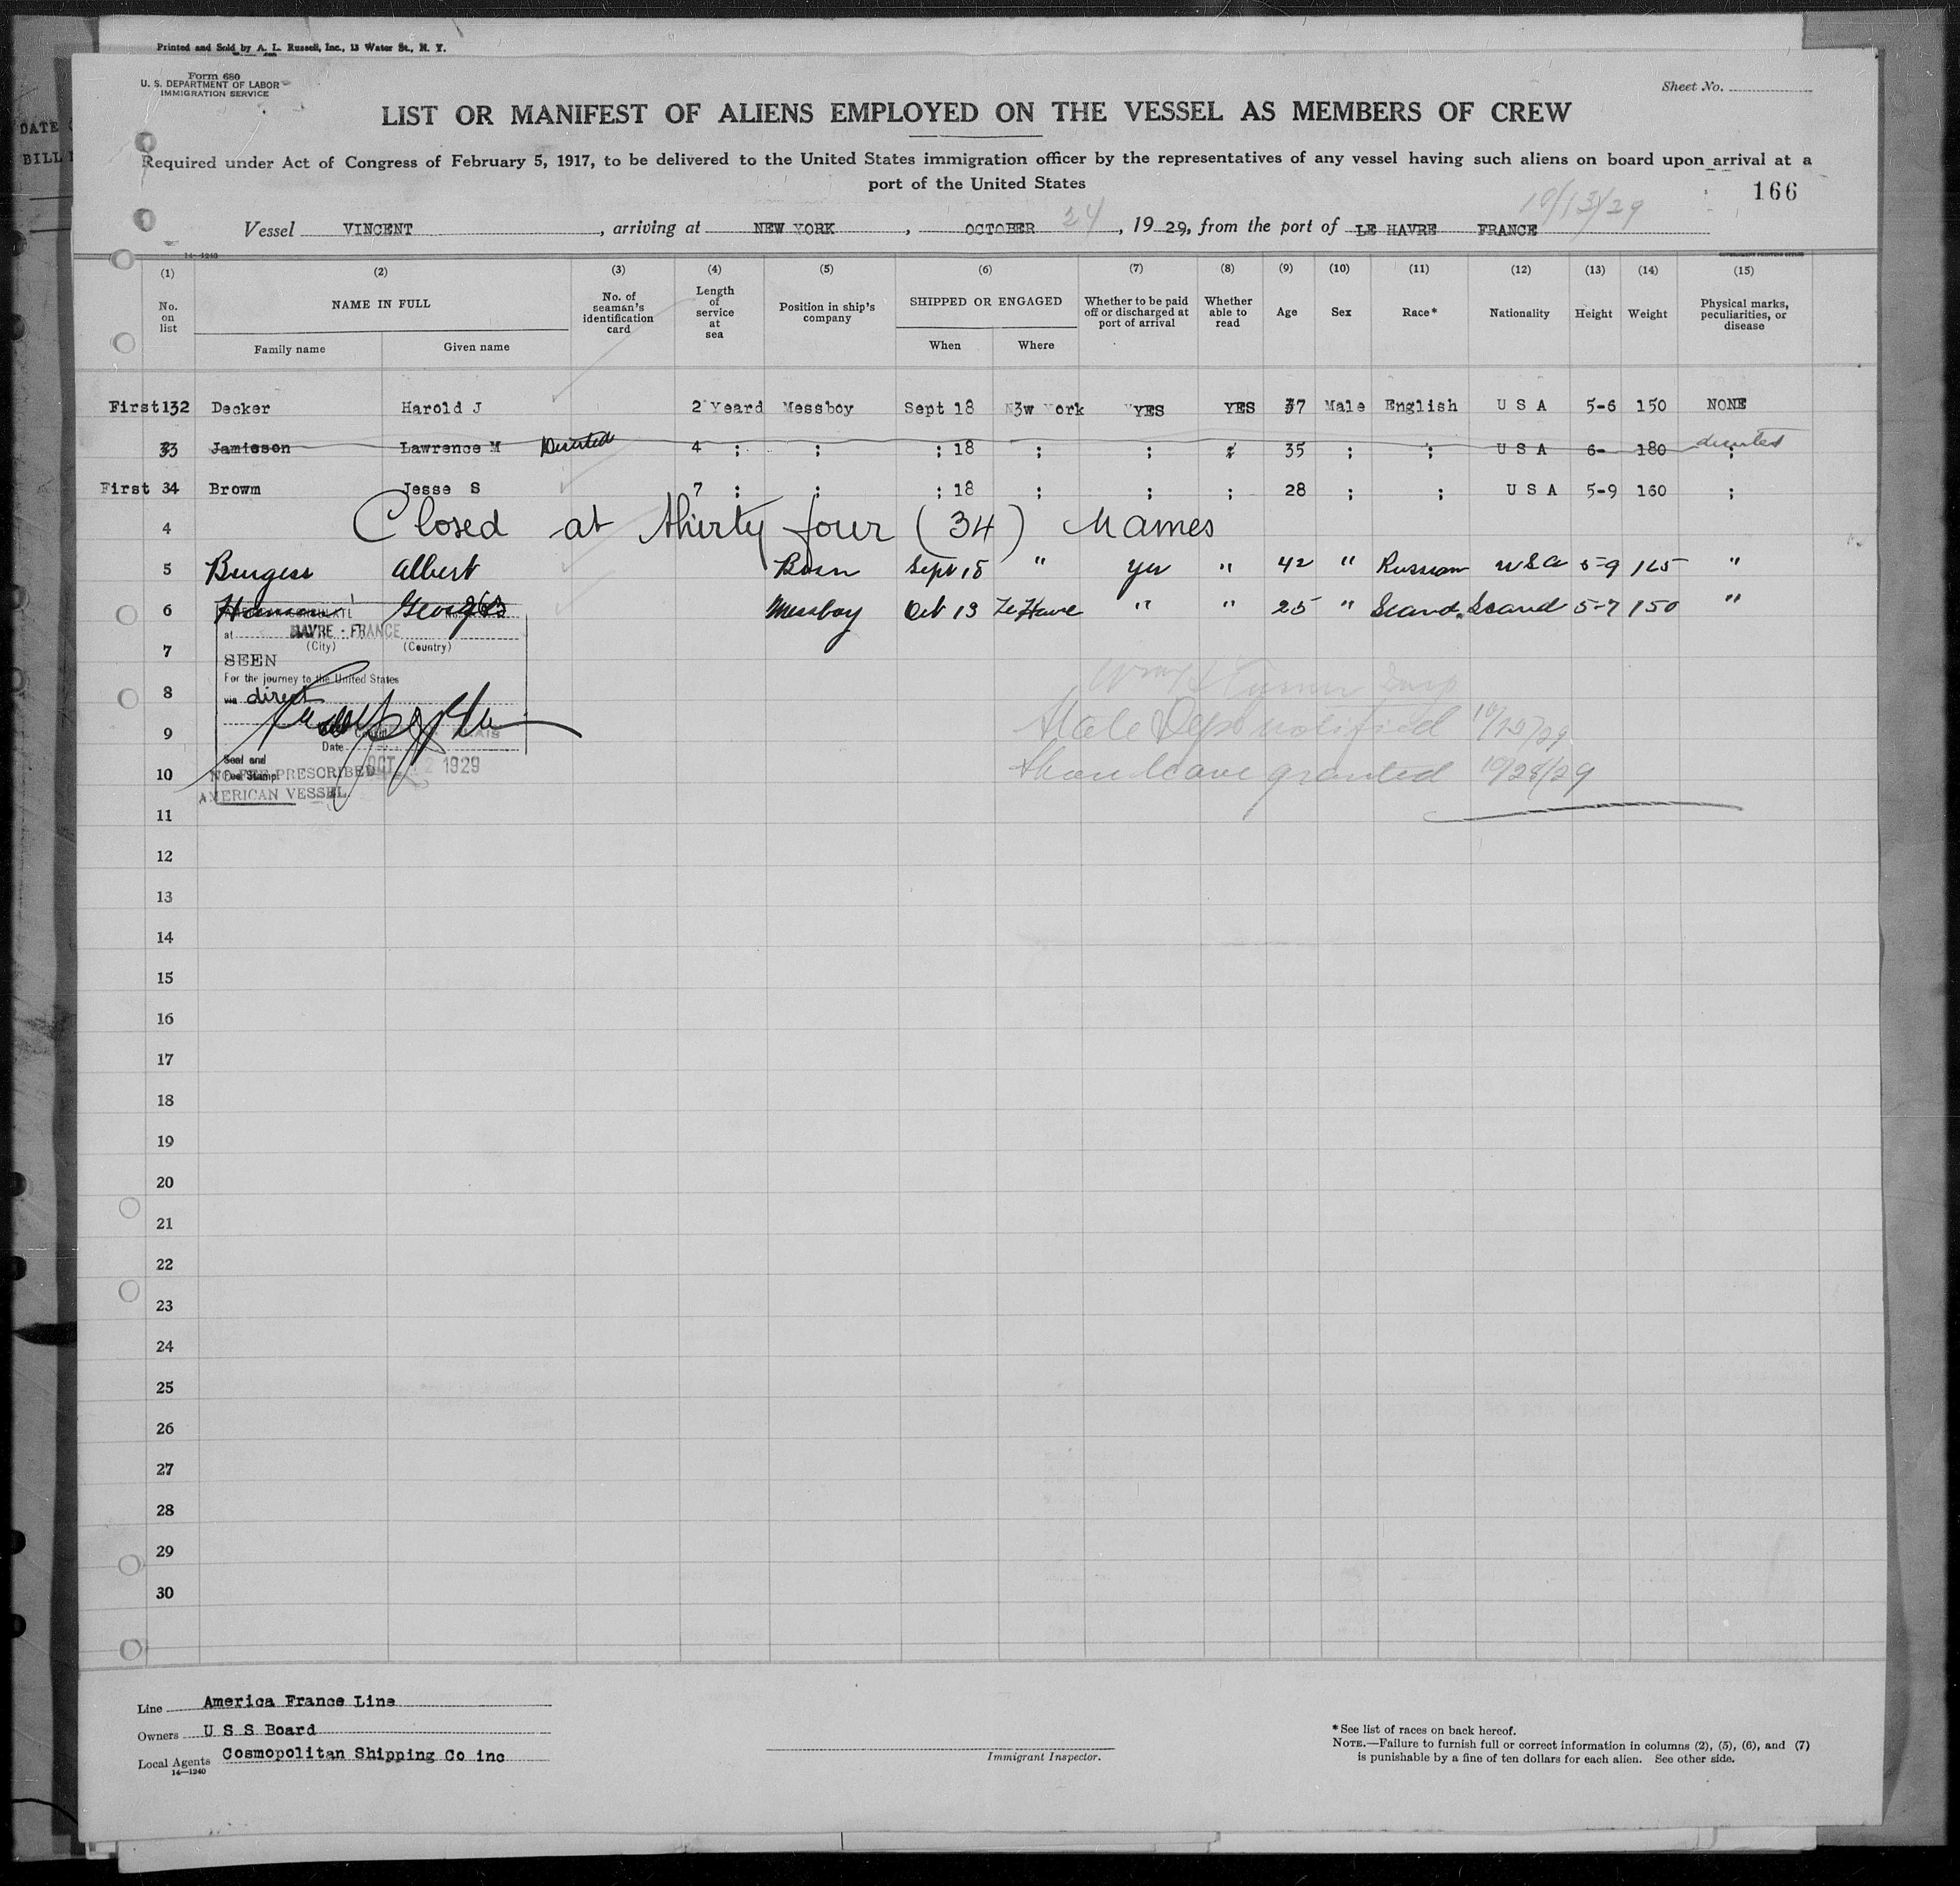 Printed and Sold by A. L. Russell, Inc., 13 Water St., N. Y.
Form 680
U. S. DEPARTMENT OF LABOR
IMMIGRATION SERVICE
Sheet No.
LIST OR MANIFEST OF ALIENS EMPLOYED ON THE VESSEL AS MEMBERS OF CREW
Required under Act of Congress of February 5, 1917, to be delivered to the United States immigration officer by the representatives of any vessel having such aliens on board upon arrival at a
port of the United States
166
10/13/29
Vessel VINCENT, arriving at NEW YORK, OCTOBER 24, 1929, from the port of LE HAVRE FRANCE
14-1240
(1) (2) (3) (4) (5) (6) (7) (8) (9) (10) (11) (12) (13) (14) (15)
No. on list
NAME IN FULL
Family name
Given name
No. of seaman's identification card
Length of service at sea
Position in ship's company
SHIPPED OR ENGAGED
When
Where
Whether to be paid off or discharged at port of arrival
Whether able to read
Age
Sex
Race*
Nationality
Height
Weight
Physical marks, peculiarities, or disease
First 132 Decker Harold J 2 Yeard Messboy Sept 18 N3w York YES YES 37 Male English U S A 5-6 150 NONE
33 Jamieson Lawrence M Deserted 4 ; ; ; 18 ; ; ; 35 ; ; U S A 6- 180 ; deserted
First 34 Browm Jesse S 7 ; ; ; 18 ; ; ; 28 ; ; U S A 5-9 160 ;
4 Closed at thirty four (34) Names
5 Burgess Albert Bosn Sept 18 " yes " 42 " Russian USA 5-9 165 "
6 George Messboy Oct 13 Le Havre " " 25 " Scand. Scand 5-7 150 "
263
at HAVRE - FRANCE
(City) (Country)
7
SEEN
For the journey to the United States
8
via direct
9
State Dept notified 10/25/29
Date OCT 12 1929
Seal and
Fee Stamp
10
NO FEE PRESCRIBED
Shore leave granted 10/28/29
AMERICAN VESSEL
11
12
13
14
15
16
17
18
19
20
21
22
23
24
25
26
27
28
29
30
Line America France Line
Owners U S S Board
Local Agents Cosmopolitan Shipping Co inc
14-1240
Immigrant Inspector.
*See list of races on back hereof.
NOTE.—Failure to furnish full or correct information in columns (2), (5), (6), and (7)
is punishable by a fine of ten dollars for each alien. See other side.
DATE
BILL